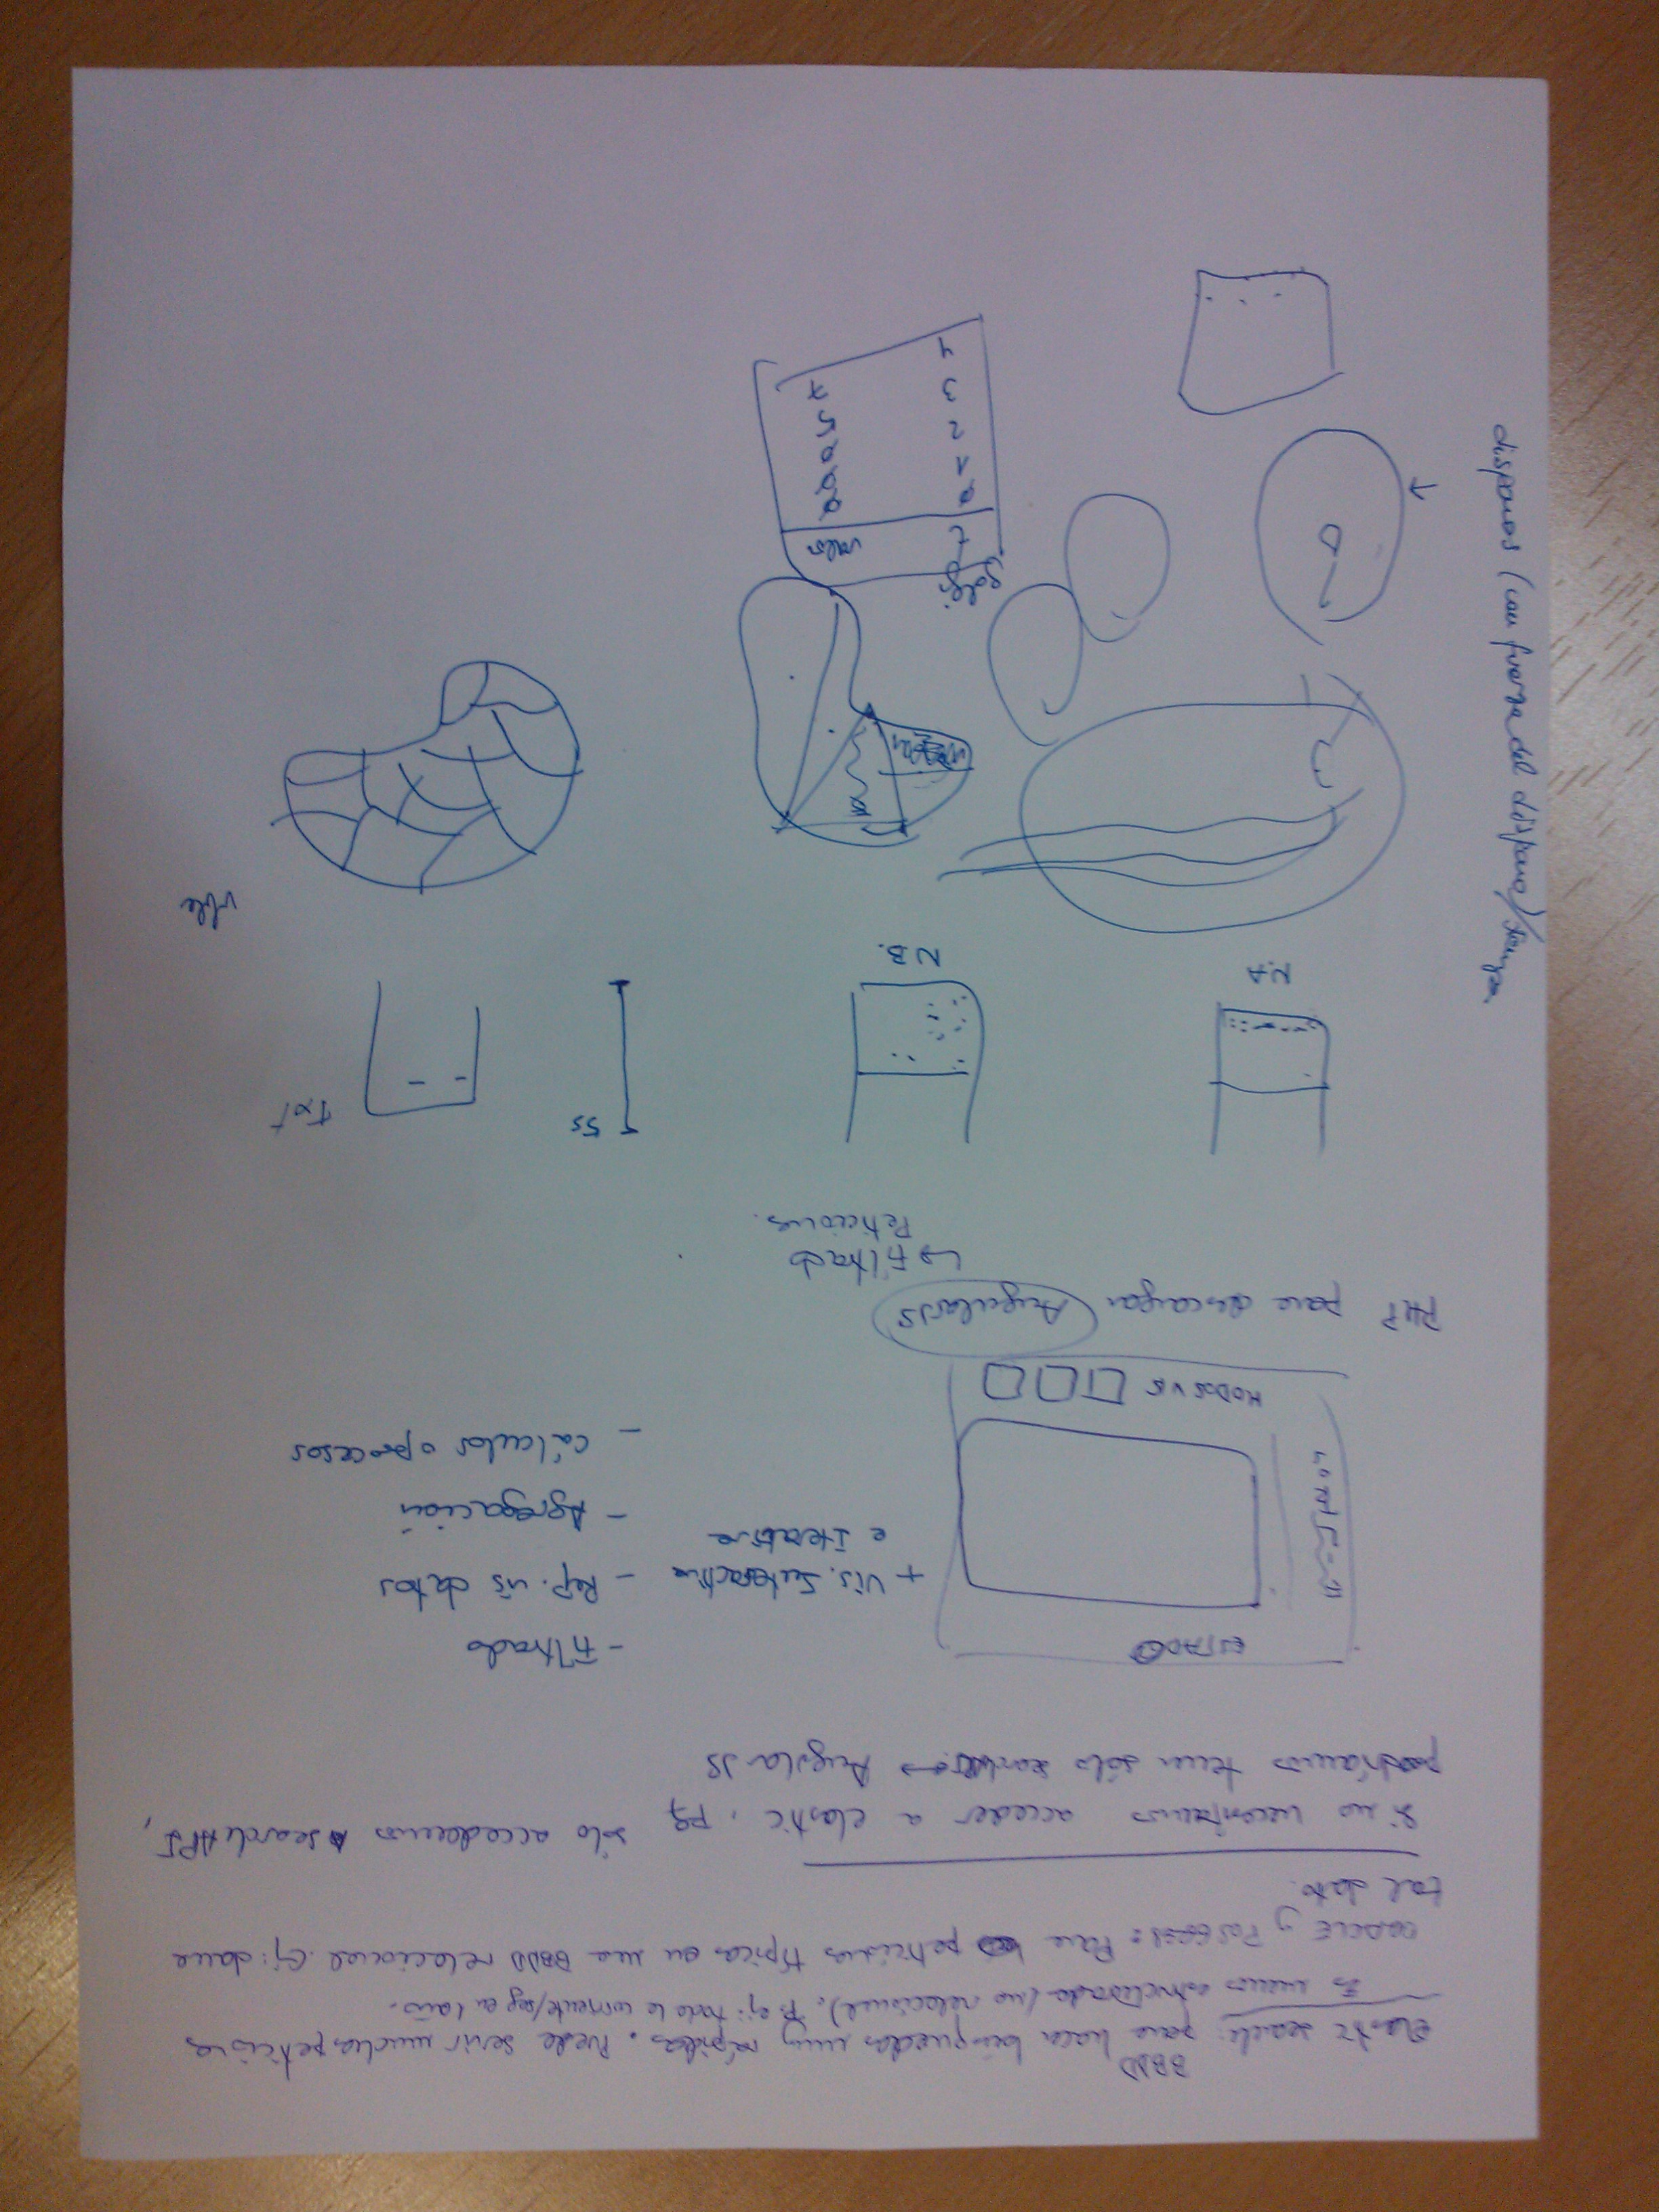 BBDD
Elastic search: para hacer búsquedas muy rápidas. Puede servir muchas peticiones
Es menos estructurada (no relacional). P. ej: toda la corriente/seg en 1 año.
ORACLE y POSGRES: Para peticiones típicas en una BBDD relacional. Ej: dame
tal dato.
Si no necesitamos acceder a elastic, pq sólo accedemos A search API,
podríamos tener sólo search ↔ Angular JS
ESTADO
+ Vis. Interactiva
e Iterativa
- Filtrado
- Rep. vis datos
- Agregación
- Cálculos o procesos
MODOS VIS
PHP para descargar AngularJS
↳ Filtrado
Peticiones.
5s
Txt
N.A
N B.
vble
disparos (con fuerza del disparo)/tiempo
golgi
t valor
0 0
0
1 0
2 5
3 7
4